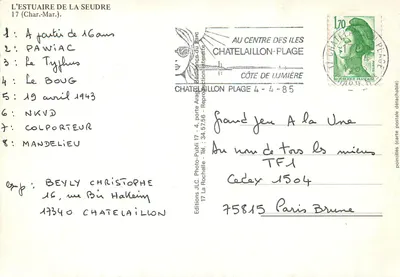 L'ESTUAIRE DE LA SEUDRE
17 (Char.-Mar.).
1: A partir de 16 ans
2: PAWIAC
3: Le Typhus
4: Le BOUG
5: 19 avril 1943
6: NKVD
7: COLPORTEUR
8: MANDELIEU
Exp: BEYLY CHRISTOPHE
16, rue Bir Hakeim
17340 CHATELAILLON
AU CENTRE DES ILES
CHATELAILLON-PLAGE
CÔTE DE LUMIÈRE
CHATELAILLON PLAGE 4-4-85
1,70
Editions JLC Photo-Publi 17 - 4, porte
17 La Rochelle - Tél. : 34.57.56 - Reproduction
Grand Jeu A la Une
Au nom de tous les miens
TF1
Cedex 1504
75815 Paris Brune
pointillés (carte postale détachable)